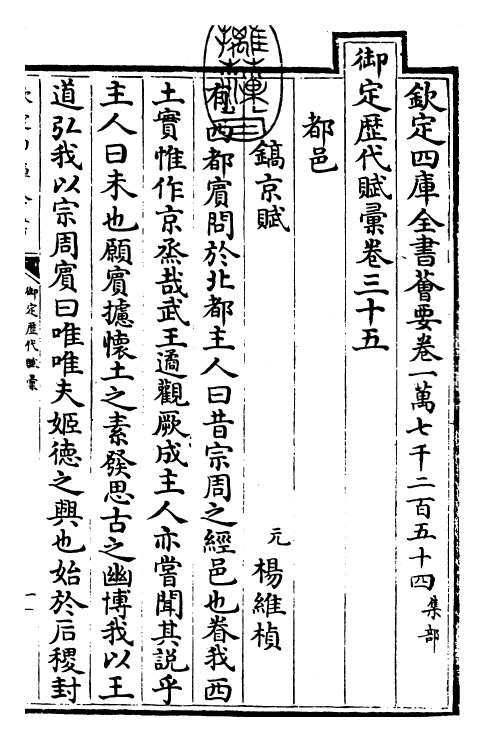 欽定四庫全書薈要卷一萬七千二百五十四集部
御定歷代賦彙卷三十五
都邑
鎬京賦 元 楊維楨
有西都賓問於北都主人曰昔宗周之經邑也眷我西
土實惟作京烝哉武王遹觀厥成主人亦嘗聞其説乎
主人曰未也願賓攄懷土之素發思古之幽博我以王
道弘我以宗周賓曰唯唯夫姬德之興也始於后稷封
御定歷代賦彙
一